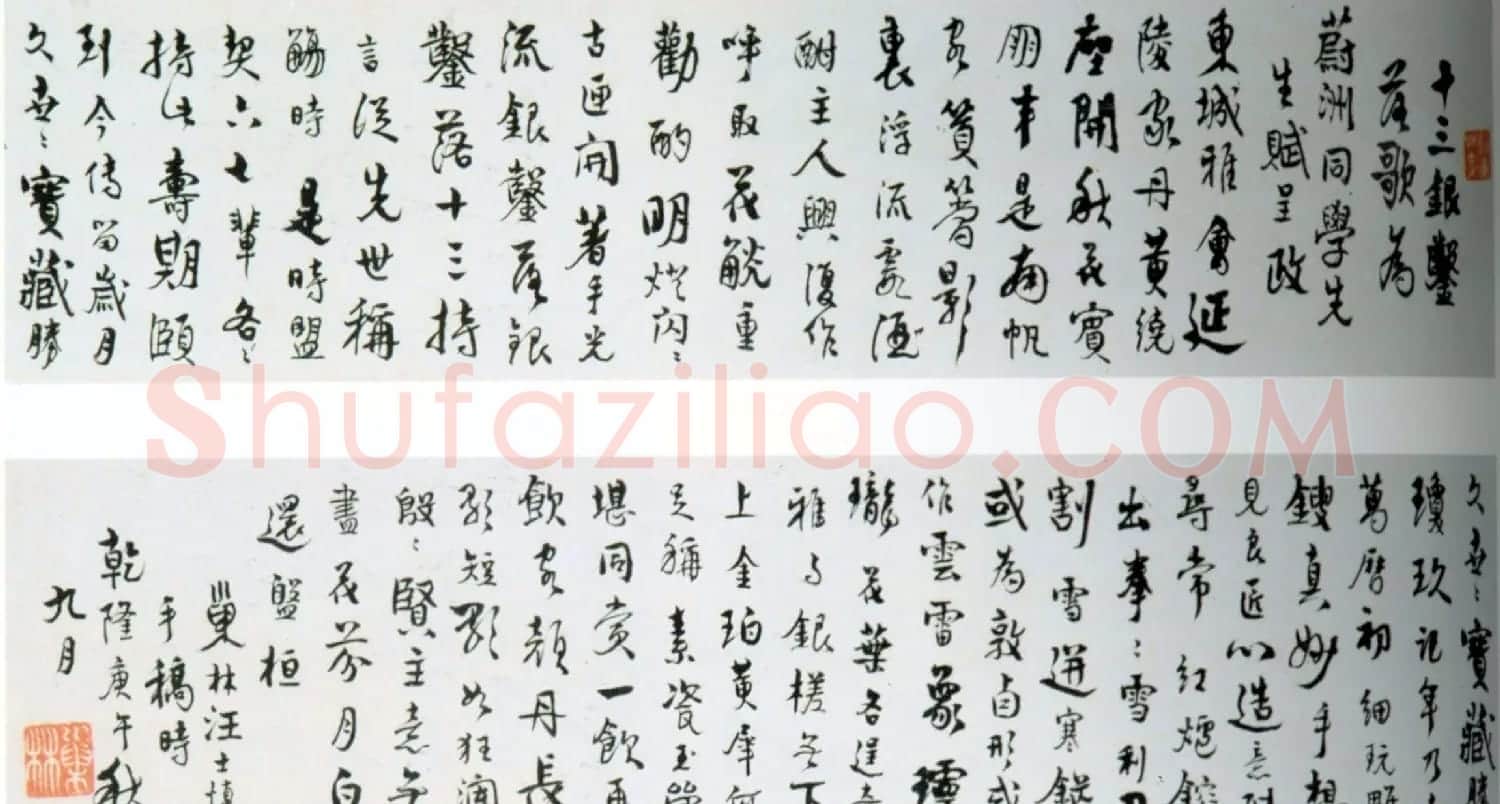 十三銀鑿
落歌為
蔚洲同學先
生賦呈政
東城雅會延
陵家丹黃繞
座開秋花賓
朋半是南帆
客篔簹影
裏浮流霞酒
酣主人興復作
呼取花觥重
勸酌明燈閃〻
古匣開著手光
流銀鑿落銀
鑿落十三持
言從先世稱
觴時是時盟
契六七輩各〻
持此壽期頤
到今傳留歲月
久世〻寶藏勝
Shufaziliao.COM
久世〻寶藏勝
瓊玖記年乃
萬曆初細玩
鏤真妙手想
見良匠心造意
尋常紅爐
出拳〻雪利
割雪迸寒
或為敦卣形或
作雲雷象
瓏花葉各逞
雅與銀槎無下
上金珀黃犀何
足稱素瓷玉
堪同賞一飲再
飲客顏丹長
歌短歌如狂瀾
殷〻賢主意無
盡花芬月白
還盤桓
巢林汪士慎
手稿時
乾隆庚午秋
九月
巢林